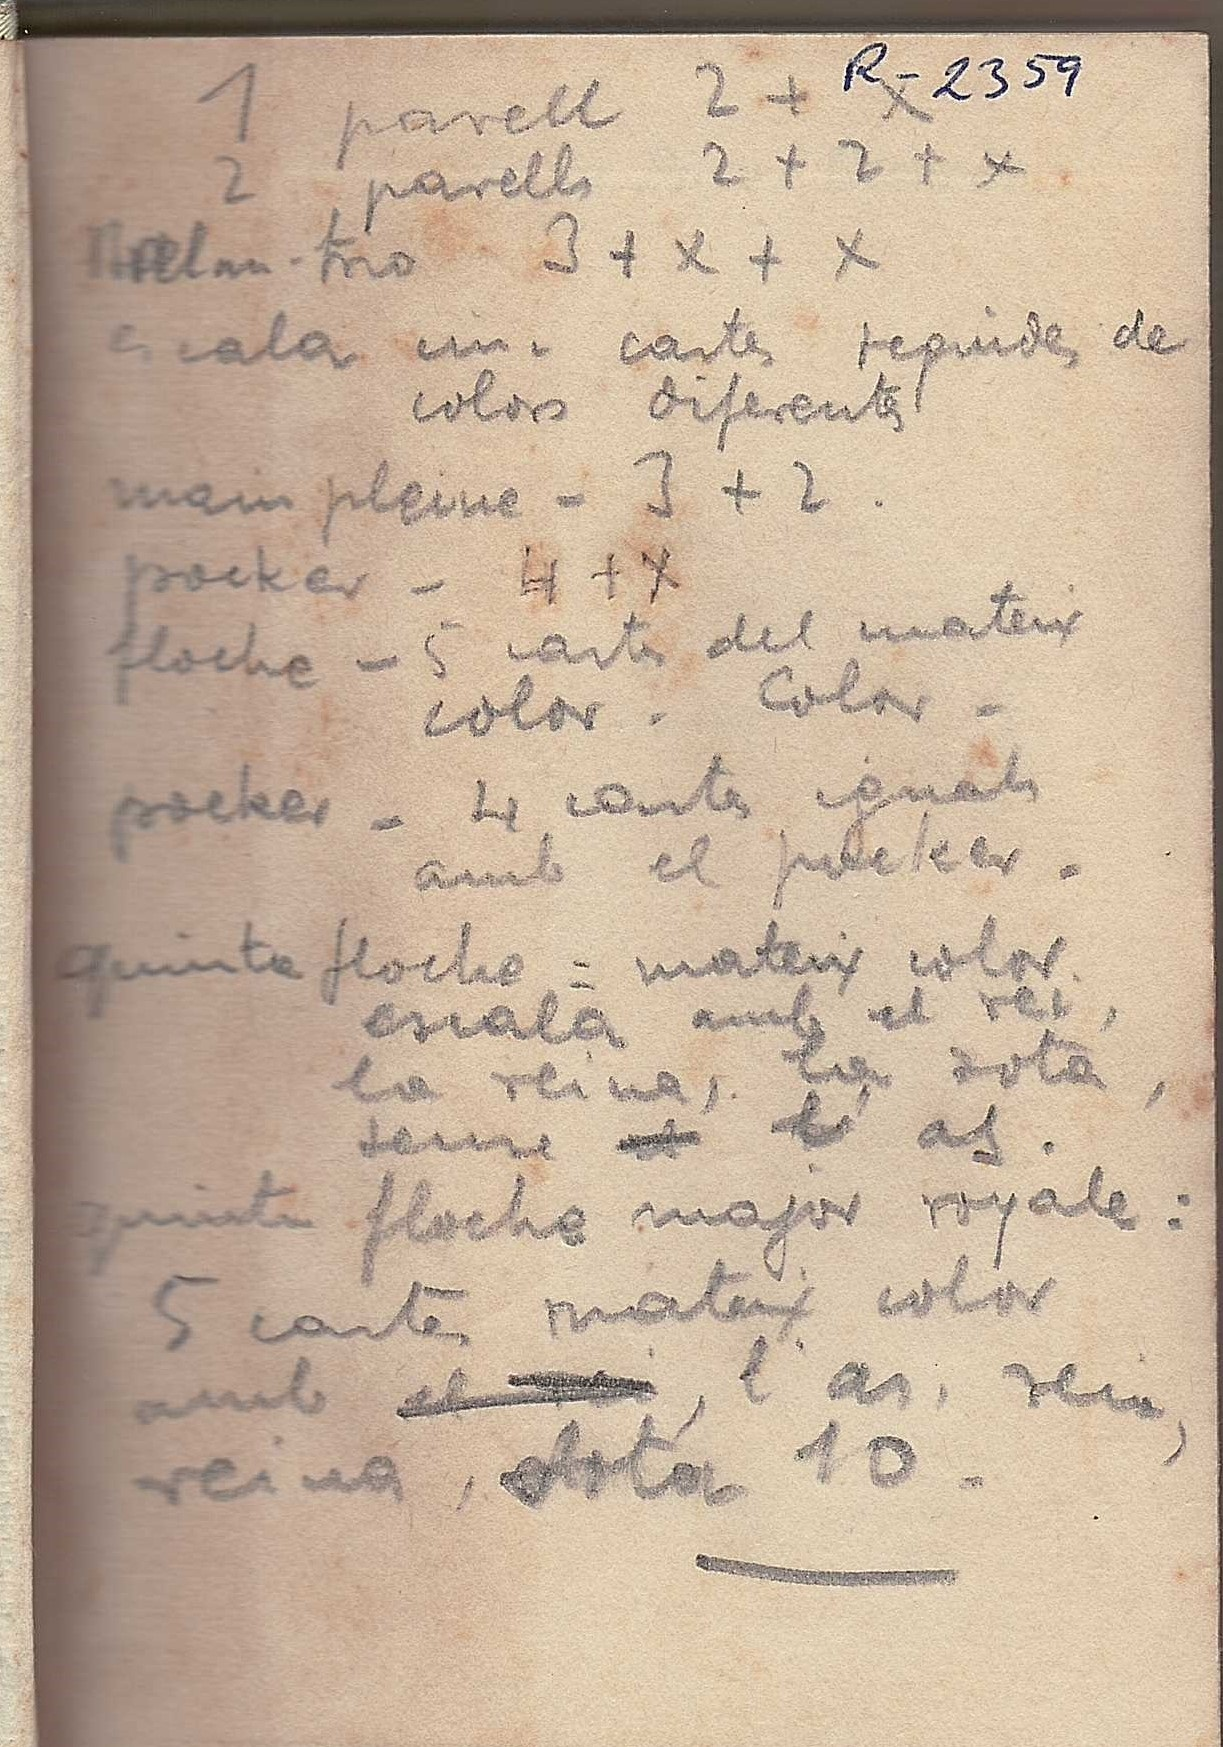 R-2359
1 parell 2 + x
2 parells 2 + 2 + x
trio 3 + x + x
escala cinc cartes seguides de
colors diferents
main pleine - 3 + 2.
poeker - 4 + x
floche - 5 cartes del mateix
color. Color -
poeker - 4 cartes iguals
amb el poeker.
quinta floche = mateix color.
escala amb el rei,
la reina, la sota,
sense l'as.
quinta floche major royale:
5 cartes mateix color
amb el rei, l'as, rei,
reina, sota 10.